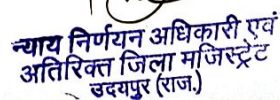 न्याय निर्णयन अधिकारी एवं
अतिरिक्त जिला मजिस्ट्रेट
उदयपुर (राज.)